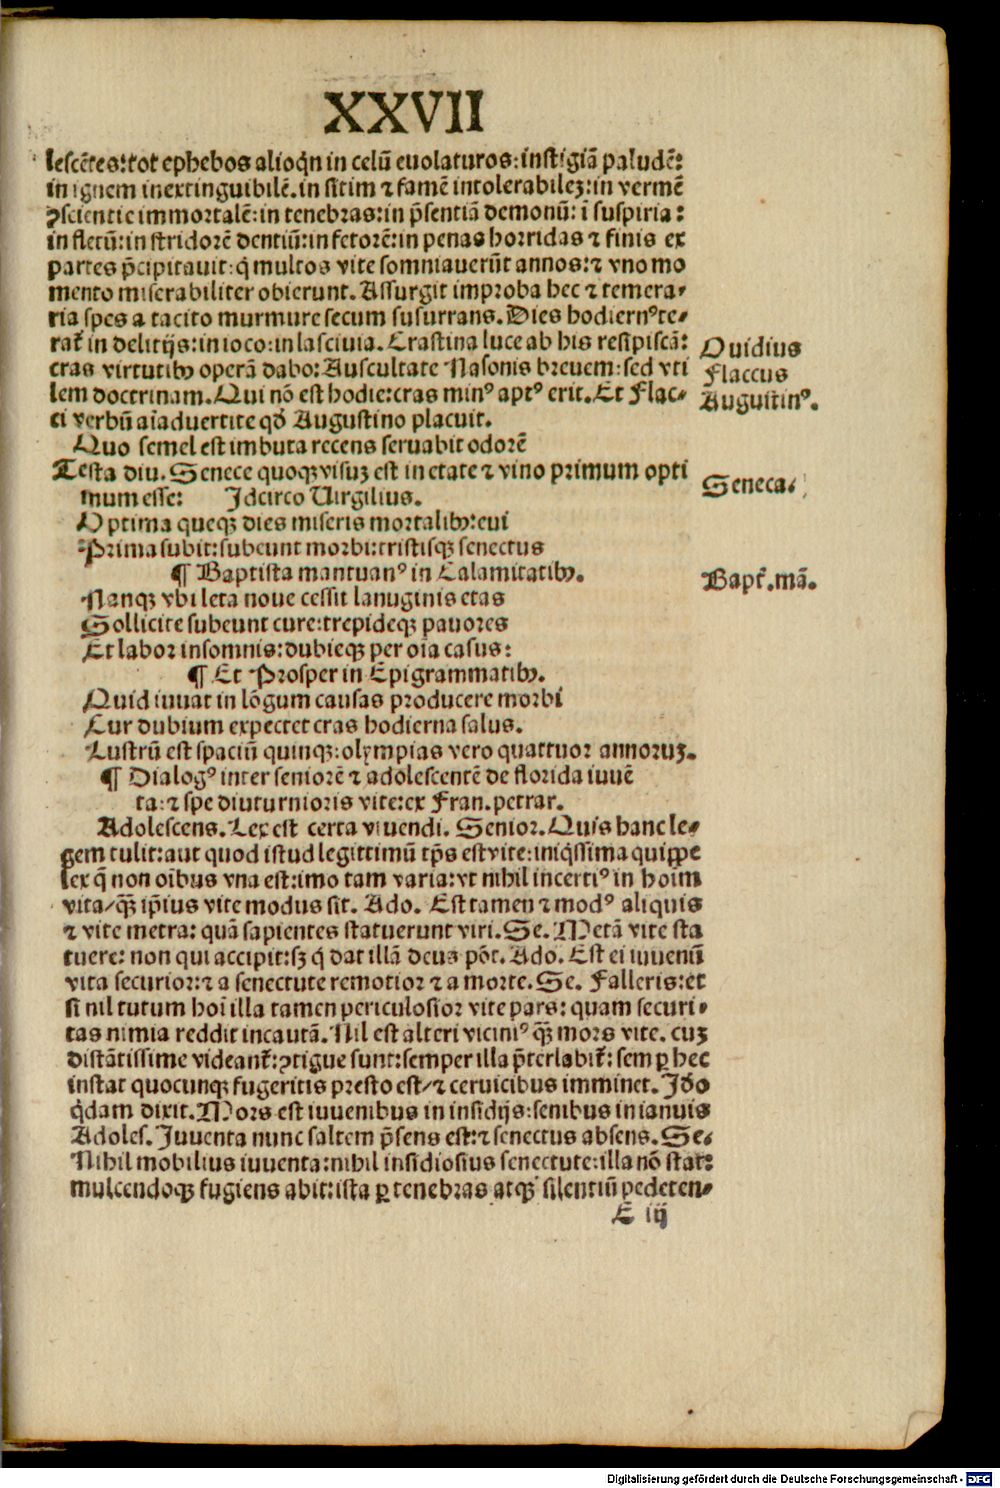 XXVII
lescētes: tot ephebos alioqn̄ in celū euolaturos: in stigiā paludē:
in ignem inextinguibilē. in sitim ⁊ famē intolerabileꝫ: in vermē
ꝯscientie immortalē: in tenebras: in p̄sentiā demonū: ī suspiria:
in fletū: in stridorē dentiū: in fetorē: in penas horridas ⁊ finis ex
partes p̄cipitauit: q̄ multos vite somniauerūt annos: ⁊ vno mo
mento miserabiliter obierunt. Assurgit improba hec ⁊ temera⸗
ria spes a tacito murmure secum susurrans. Dies hodiernꝰ te⸗
rat̄ in delitijs: in ioco: in lasciuia. Crastina luce ab his resipiscā:
cras virtutibꝫ operā dabo: Auscultate Nasonis breuem: sed vti
lem doctrinam. Qui nō est hodie: cras minꝰ aptꝰ erit. Et Flac⸗
ci verbū aīaduertite qđ Augustino placuit.
Quo semel est imbuta recens seruabit odorē
Testa diu. Senece quoqꝫ visuꝫ est in etate ⁊ vino primum opti
mum esse: Idcirco Uirgilius.
Optima queqꝫ dies miseris mortalibꝫ: eui
Prima subit: subeunt morbi: tristisqꝫ senectus
¶ Baptista mantuanꝰ in Calamitatibꝫ.
Nanqꝫ vbi leta noue cessit lanuginis etas
Sollicite subeunt cure: trepideqꝫ pauores
Et labor insomnis: dubieqꝫ per oīa casus:
¶ Et Prosper in Epigrammatibꝫ.
Quid iuuat in lōgum causas producere morbi
Cur dubium expectet cras hodierna salus.
Lustrū est spaciū quinqꝫ: olympias vero quattuor annoruꝫ.
¶ Dialogꝰ inter seniorē ⁊ adolescentē de florida iuuē
ta: ⁊ spe diuturnioris vite: ex Fran. petrar.
Adolescens. Lex est certa viuendi. Senior. Quis hanc le⸗
gem tulit: aut quod istud legittimū tp̄s est vite: iniq̄ssima quippe
lex q̄ non oībus vna est: imo tam varia: vt nihil incertiꝰ in hoīm
vita/ qꝫ̄ ip̄ius vite modus sit. Ado. Est tamen ⁊ modꝰ aliquis
⁊ vite metra: quā sapientes statuerunt viri. Se. Metā vite sta
tuere: non qui accipit: sꝫ q̄ dat illā deus pōt. Ado. Est ei iuuenū
vita securior: ⁊ a senectute remotior ⁊ a morte. Se. Falleris: et
si nil tutum hoī illa tamen periculosior vite pars: quam securi⸗
tas nimia reddit incautā. Nil est alteri viciniꝰ qꝫ̄ mors vite. cuꝫ
distātissime videant̄: ꝯtigue sunt: semper illa p̄terlabit̄: semꝑ hec
instat quocunqꝫ fugeritis presto est/ ⁊ ceruicibus imminet. Iđo
q̇dam dixit. Mors est iuuenibus in insidijs: senibus in ianuis
Adoles. Iuuenta nunc saltem p̄sens est: ⁊ senectus absens. Se⸗
Nihil mobilius iuuenta: nihil insidiosius senectute: illa nō stat:
mulcendoqꝫ fugiens abit: ista ꝑ tenebras atqꝫ silentiū pedeten⸗
E iij
Ouidius
Flaccus
Augustinꝰ.
Seneca.
Bapt̄. mā.
Digitalisierung gefördert durch die Deutsche Forschungsgemeinschaft - DFG